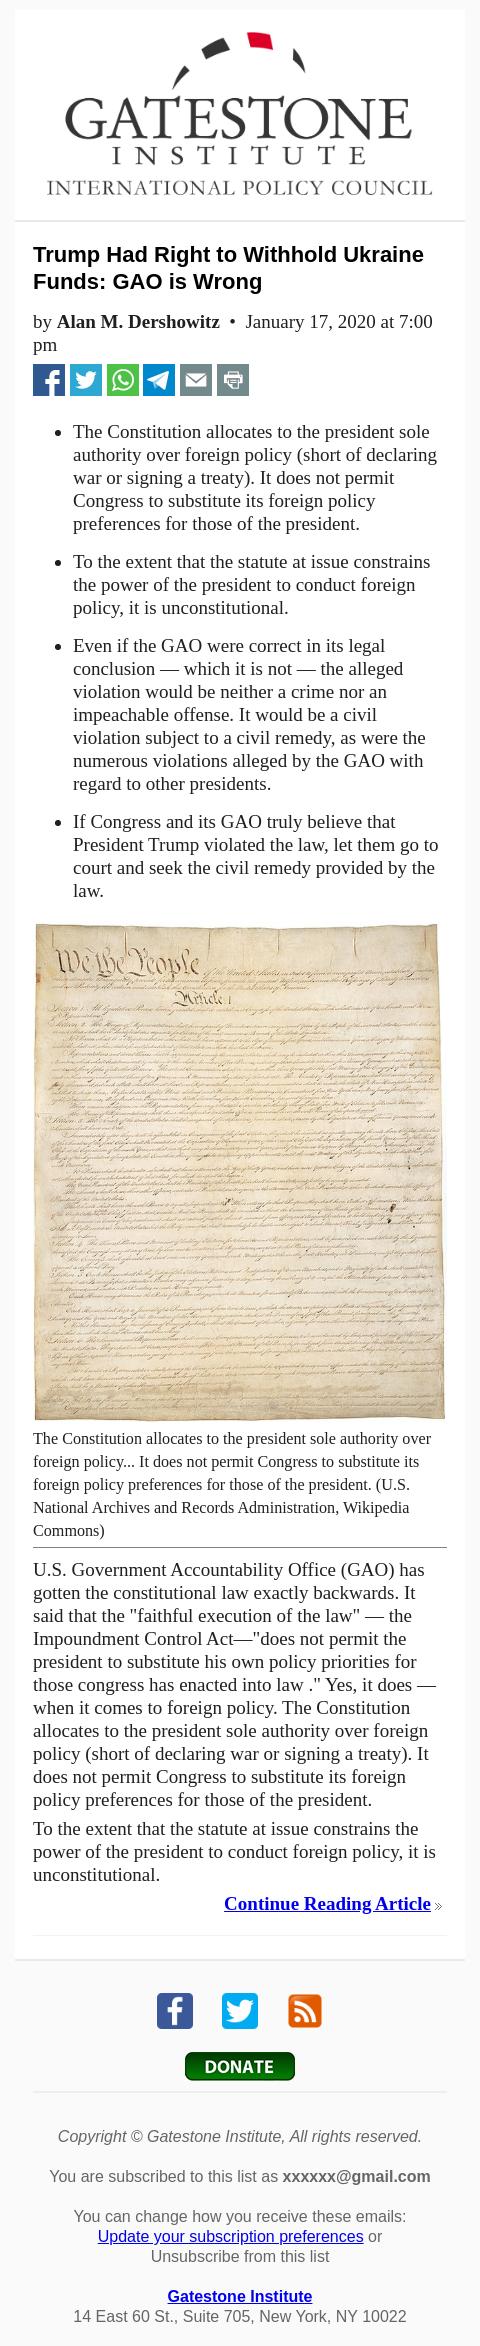 GATESTONE
INSTITUTE
INTERNATIONAL POLICY COUNCIL
Trump Had Right to Withhold Ukraine
Funds: GAO is Wrong
by Alan M. Dershowitz • January 17, 2020 at 7:00
pm
• The Constitution allocates to the president sole
authority over foreign policy (short of declaring
war or signing a treaty). It does not permit
Congress to substitute its foreign policy
preferences for those of the president.
• To the extent that the statute at issue constrains
the power of the president to conduct foreign
policy, it is unconstitutional.
• Even if the GAO were correct in its legal
conclusion — which it is not — the alleged
violation would be neither a crime nor an
impeachable offense. It would be a civil
violation subject to a civil remedy, as were the
numerous violations alleged by the GAO with
regard to other presidents.
• If Congress and its GAO truly believe that
President Trump violated the law, let them go to
court and seek the civil remedy provided by the
law.
We the People
Article I
The Constitution allocates to the president sole authority over
foreign policy... It does not permit Congress to substitute its
foreign policy preferences for those of the president. (U.S.
National Archives and Records Administration, Wikipedia
Commons)
U.S. Government Accountability Office (GAO) has
gotten the constitutional law exactly backwards. It
said that the "faithful execution of the law" — the
Impoundment Control Act—"does not permit the
president to substitute his own policy priorities for
those congress has enacted into law ." Yes, it does —
when it comes to foreign policy. The Constitution
allocates to the president sole authority over foreign
policy (short of declaring war or signing a treaty). It
does not permit Congress to substitute its foreign
policy preferences for those of the president.
To the extent that the statute at issue constrains the
power of the president to conduct foreign policy, it is
unconstitutional.
Continue Reading Article »
DONATE
Copyright © Gatestone Institute, All rights reserved.
You are subscribed to this list as xxxxxx@gmail.com
You can change how you receive these emails:
Update your subscription preferences or
Unsubscribe from this list
Gatestone Institute
14 East 60 St., Suite 705, New York, NY 10022